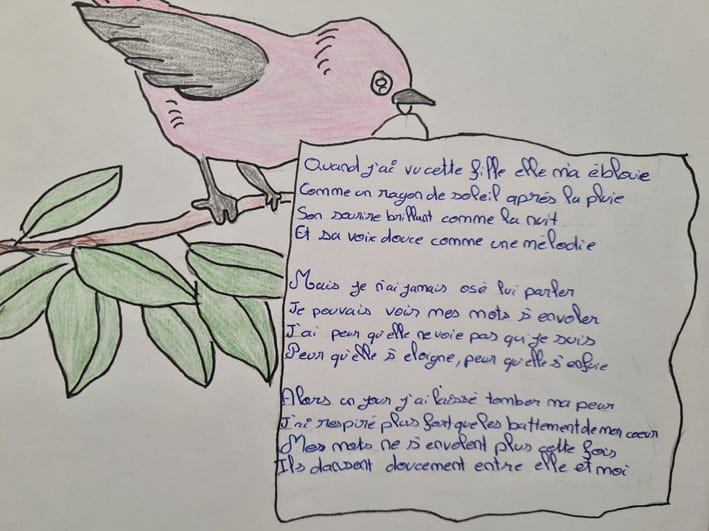 Quand j'ai vu cette fille elle m'a éblouie
Comme un rayon de soleil aprés la pluie
Son sourire brillant comme la nuit
Et sa voix douce comme une mélodie
Mais je n'ai jamais osé lui parler
Je pouvais voir mes mots s'envoler
J'ai peur qu'elle ne voie pas qui je suis
Peur qu'elle s'eloigne, peur qu'elle s'enfuie
Alors un jour j'ai laissé tomber ma peur
J'ai respiré plus fort que les battement de mon coeur
Mes mots ne s'envolent plus cette fois
Ils dansent doucement entre elle et moi